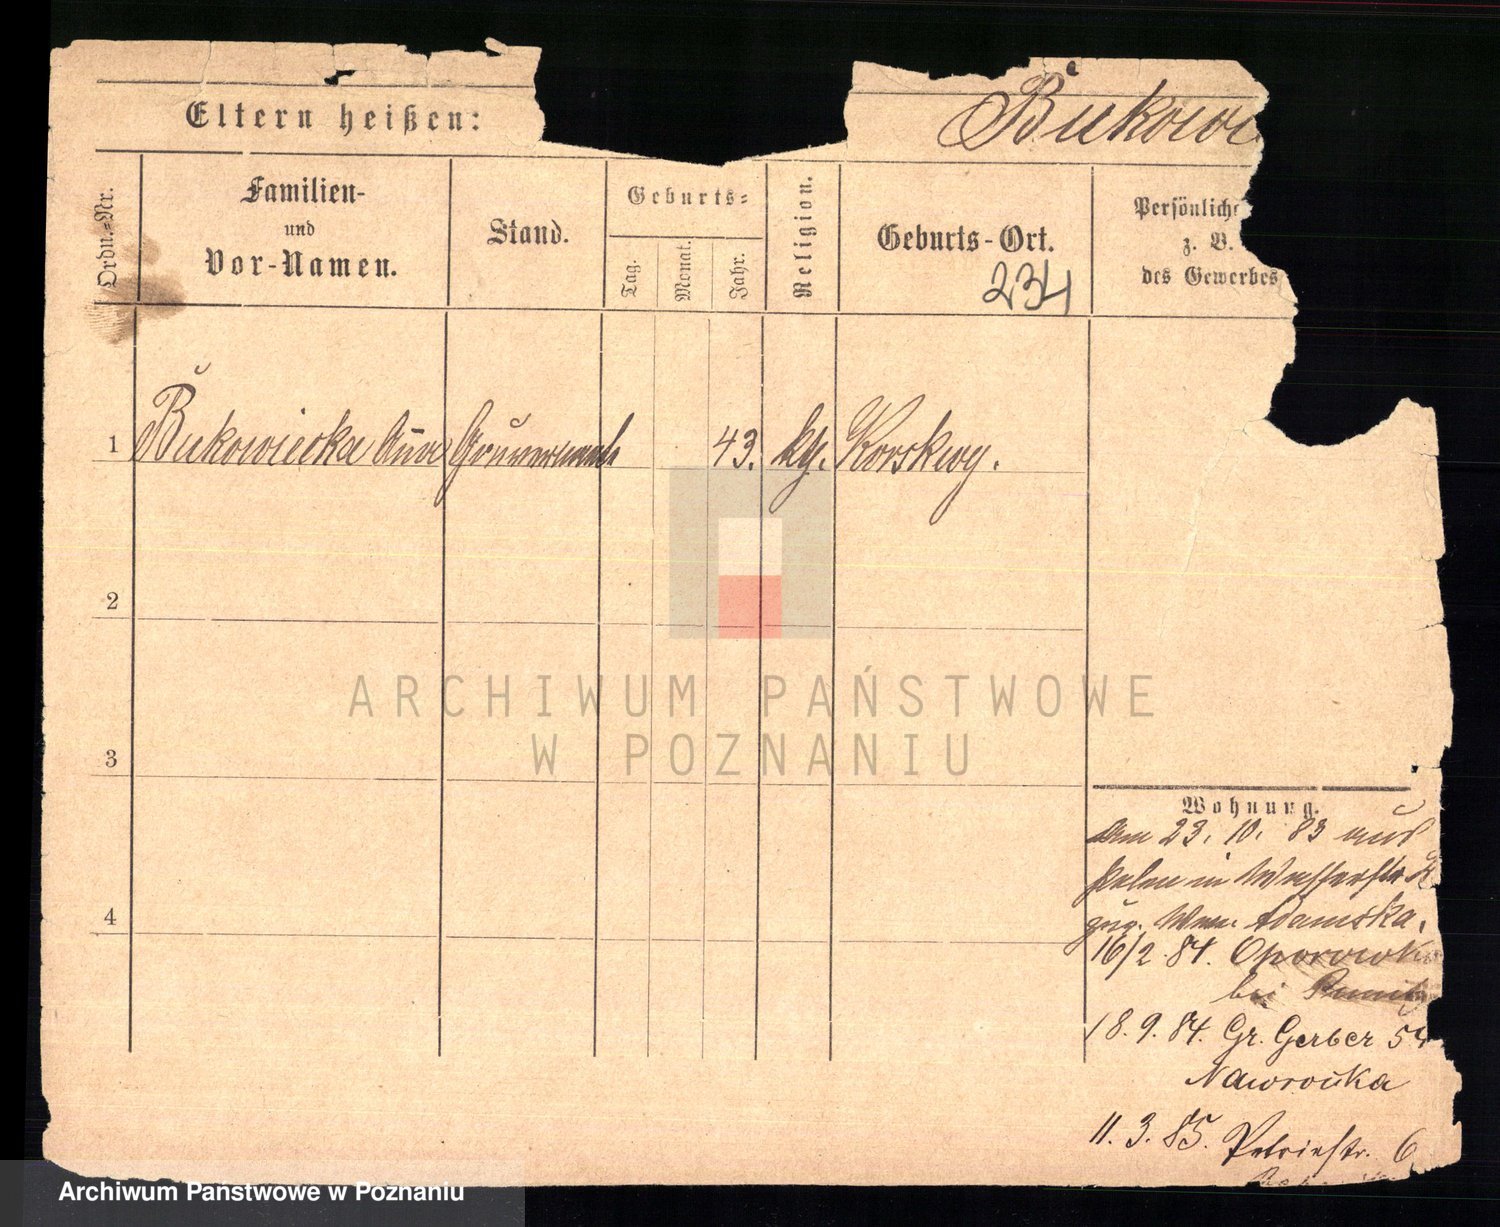 Eltern heißen:
Bukow
Ordn.-Nr.
Familien-
und
Vor-Namen.
Stand.
Geburts-
Tag.
Monat.
Jahr.
Religion.
Geburts-Ort.
234
Persönliche
z. B.
des Gewerbes
1 Bukowiecka 43. kth.
2
3
4
Wohnung.
am 23. 10. 83 aus
in Wasserstr.
zug. Adamska.
16/2 84.
bei
18.9.84. Gr. Gerber 54
Nawrocka
11.3.85. Petristr. 6
ARCHIWUM PAŃSTWOWE
W POZNANIU
Archiwum Państwowe w Poznaniu